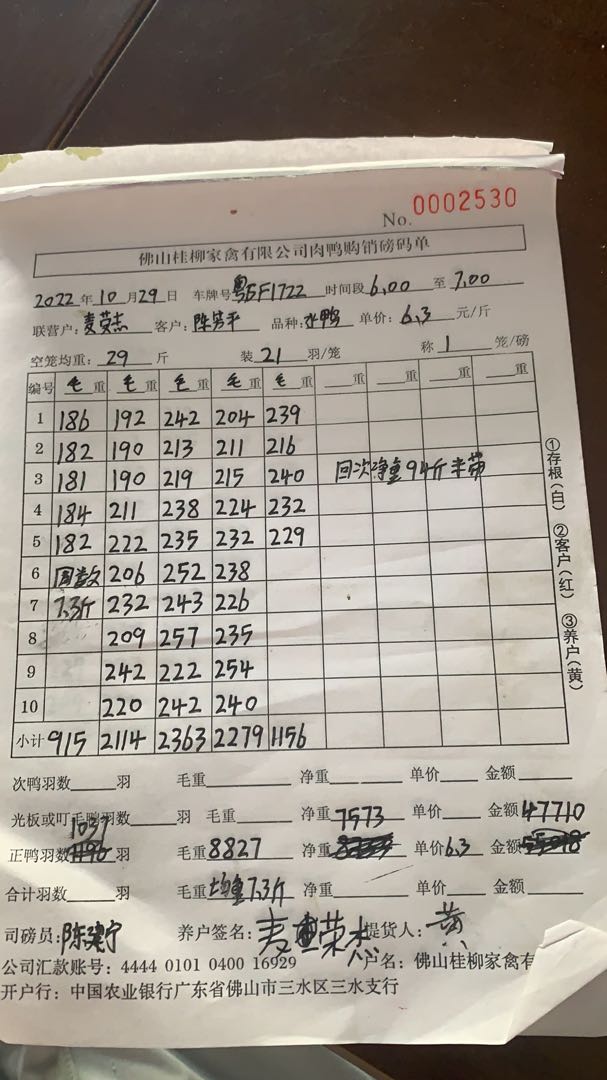 No. 0002530
佛山桂柳家禽有限公司肉鸭购销磅码单
2022年10月29日 车牌号粤EF1722 时间段6.00至7.00
联营户:麦荣志 客户:陈芳平 品种: 单价:6.3元/斤
空笼均重:29斤 装21羽/笼 称1笼/磅
编号 毛重 毛重 毛重 毛重 毛重 重 重 重 重
1 186 192 242 204 239
2 182 190 213 211 216
3 181 190 219 215 240 回次净重94斤半带
4 184 211 238 224 232
5 182 222 235 232 229
6 206 252 238
7 7.3斤 232 243 226
8 209 257 235
9 242 222 254
10 220 242 240
小计 915 2114 2363 2279 1156
①存根(白) ②客户(红) ③养户(黄)
次鸭羽数 羽 毛重 净重 单价 金额
光板或叮毛鸭羽数 羽 毛重 净重 7573 单价 金额 47710
正鸭羽数 1037 羽 毛重8827 净重 单价6.3 金额
合计羽数 羽 毛重均重7.3斤 净重 单价 金额
司磅员:陈建宁 养户签名:麦荣志 提货人:黄
公司汇款账号:4444 0101 0400 16929 户名:佛山桂柳家禽有
开户行:中国农业银行广东省佛山市三水区三水支行